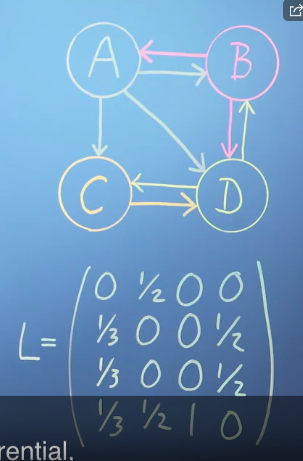 A B
C D
L = ( 0 ½ 0 0
⅓ 0 0 ½
⅓ 0 0 ½
⅓ ½ 1 0 )
rential.